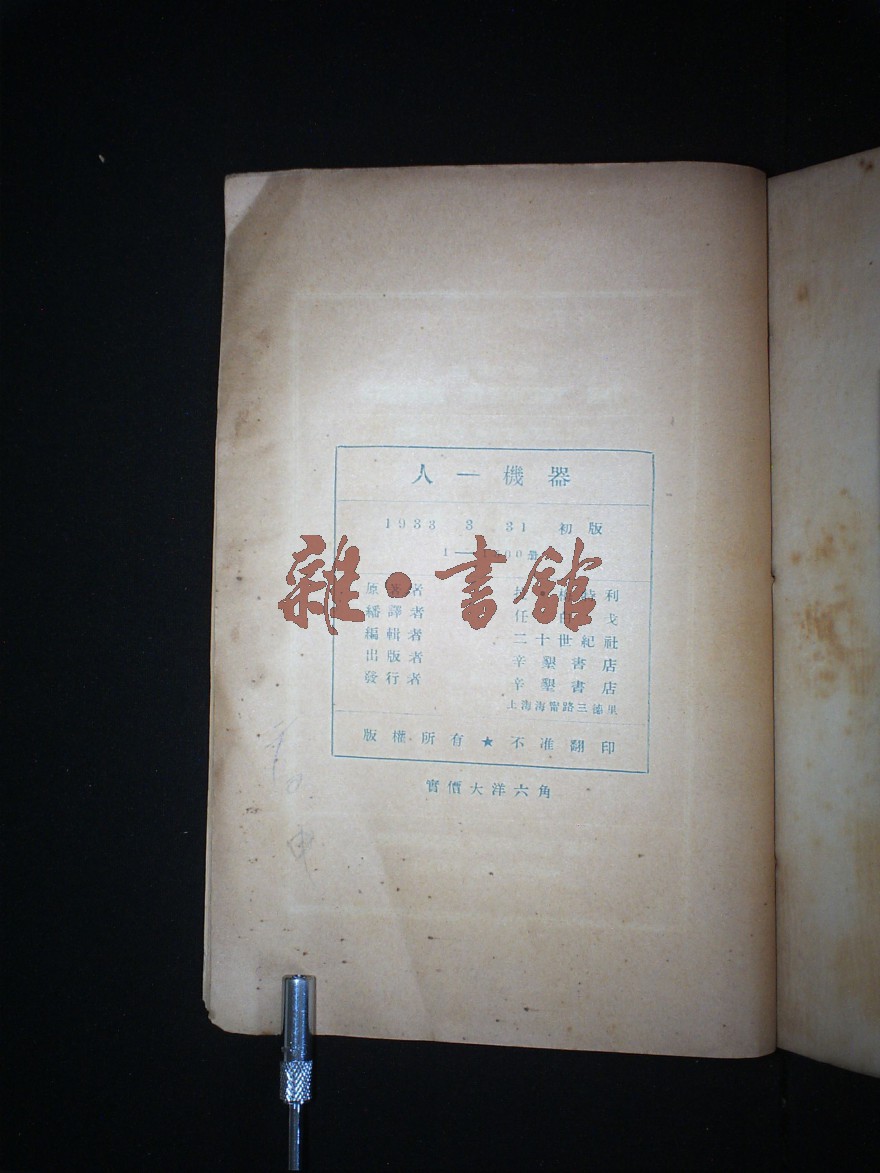 人一機器
1933 3 31 初版
1— 00冊
雜·書館
原著者 特利
繙譯者 任 戈
編輯者 二十世紀社
出版者 辛墾書店
發行者 辛墾書店
上海海甯路三德里
版權所有★不准翻印
實價大洋六角